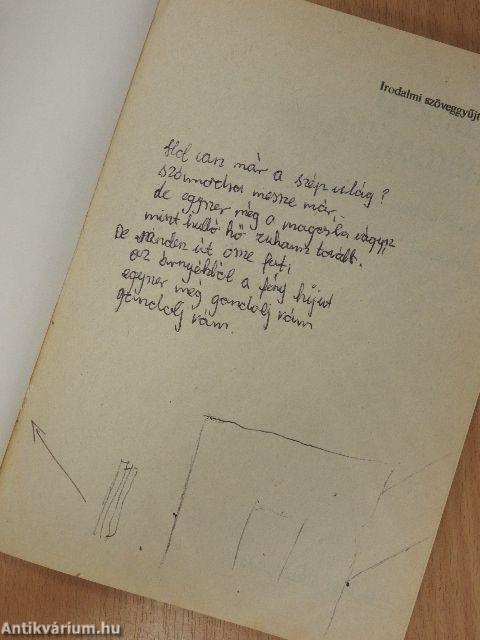 Irodalmi szöveggyűjt
Hol van már a szép világ?
számodra messze már.
de egyszer még a magasba vágysz
mint hulló hő zuhansz tovább.
De minden út össze fut,
az árnyékból a fény hívja
egyszer még gondolj rám
gondolj rám.
Antikvárium.hu